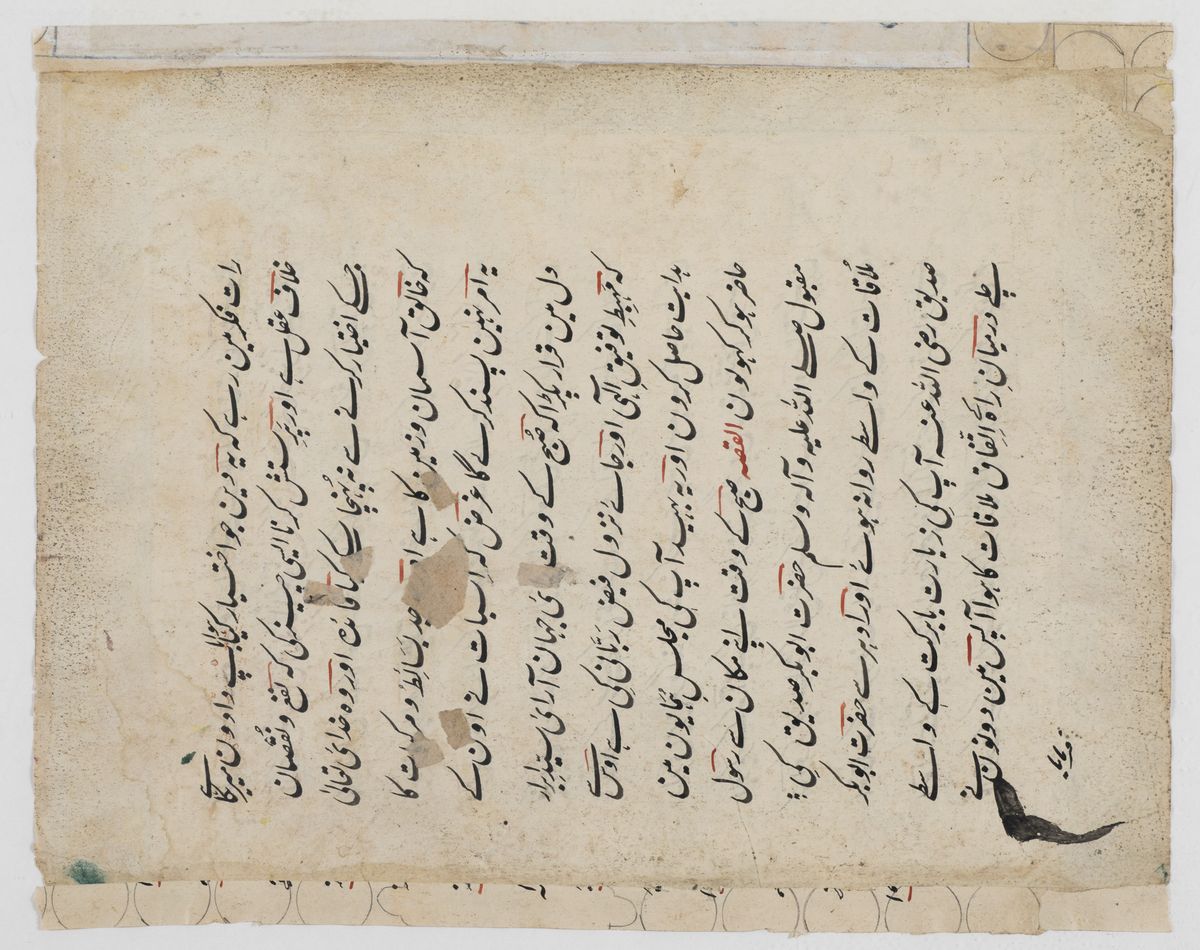 رات فکر مین رہے کہ یہ دین جو اختیار کیا ہے باپ و دادون میرے کا
خلاف عقل ہے اور پرستش کرنا ایسی چیز کی کہ نفع و نقصان
جسکے اختیار کرنے سے نہ پہنچا سکے کیا فائدہ اور وہ خدای تعالی
کہ خالق آسمان و زمین کا ہے بسائط و مرکبات کا
یہ امر نہین پسند کرے گا غرض کہ اسبات نے اون کے
دل مین قرار پکڑا کہ صبح کے وقت جہان آرای سید ابرار
کہ مہبط توفیق الہی اور جائے نزول فیض ربانی کی ہے اوس سے
ہدایت حاصل کرون اور یہ بہید آپ کی مجلس ہمایون مین
حاضر ہو کر کہولون القصہ صبح کے وقت اپنے مکان سے رسول
مقبول صلے اللہ علیہ و آلہ وسلم حضرت ابوبکر صدیق کی
ملاقات کے واسطے روانہ ہوئے اور اودہر سے حضرت ابوبکر
صدیق رضی اللہ عنہ آپ کی زیارت بابرکت کے واسطے
چلے درمیان راہ اتفاق ملاقات کا ہوا آپس مین دونون نے